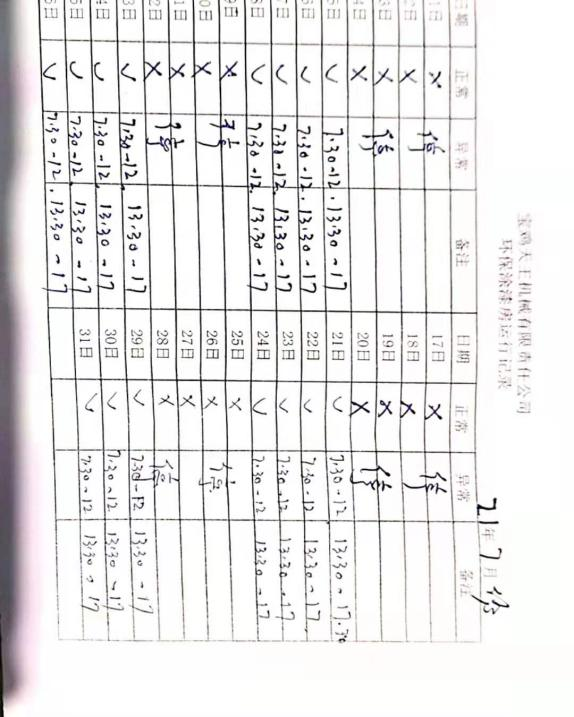 宝鸡天王机械有限责任公司
环保涂漆房运行记录
21年7月份
日期 正常 异常 备注 日期 正常 异常 备注
1日 × 停 17日 × 停
2日 × 18日 ×
3日 × 停 19日 × 停
4日 × 20日 ×
5日 ✓ 7.30-12. 13.30-17 21日 ✓ 7.30-12 13.30-17.30
6日 ✓ 7.30-12. 13.30-17 22日 ✓ 7.30-12 13.30-17
7日 ✓ 7.30-12. 13.30-17 23日 ✓ 7.30-12 13.30-17
8日 ✓ 7.30-12. 13.30-17 24日 ✓ 7.30-12 13.30-17
9日 × 停 25日 ×
0日 × 26日 × 停
1日 × 27日 ×
2日 × 停 28日 × 停
3日 ✓ 7.30-12. 13.30-17 29日 ✓ 7.30-12 13.30-17
4日 ✓ 7.30-12. 13.30-17 30日 ✓ 7.30-12 13.30-17
5日 ✓ 7.30-12. 13.30-17 31日 ✓ 7.30-12 13.30-17
6日 ✓ 7.30-12. 13.30-17